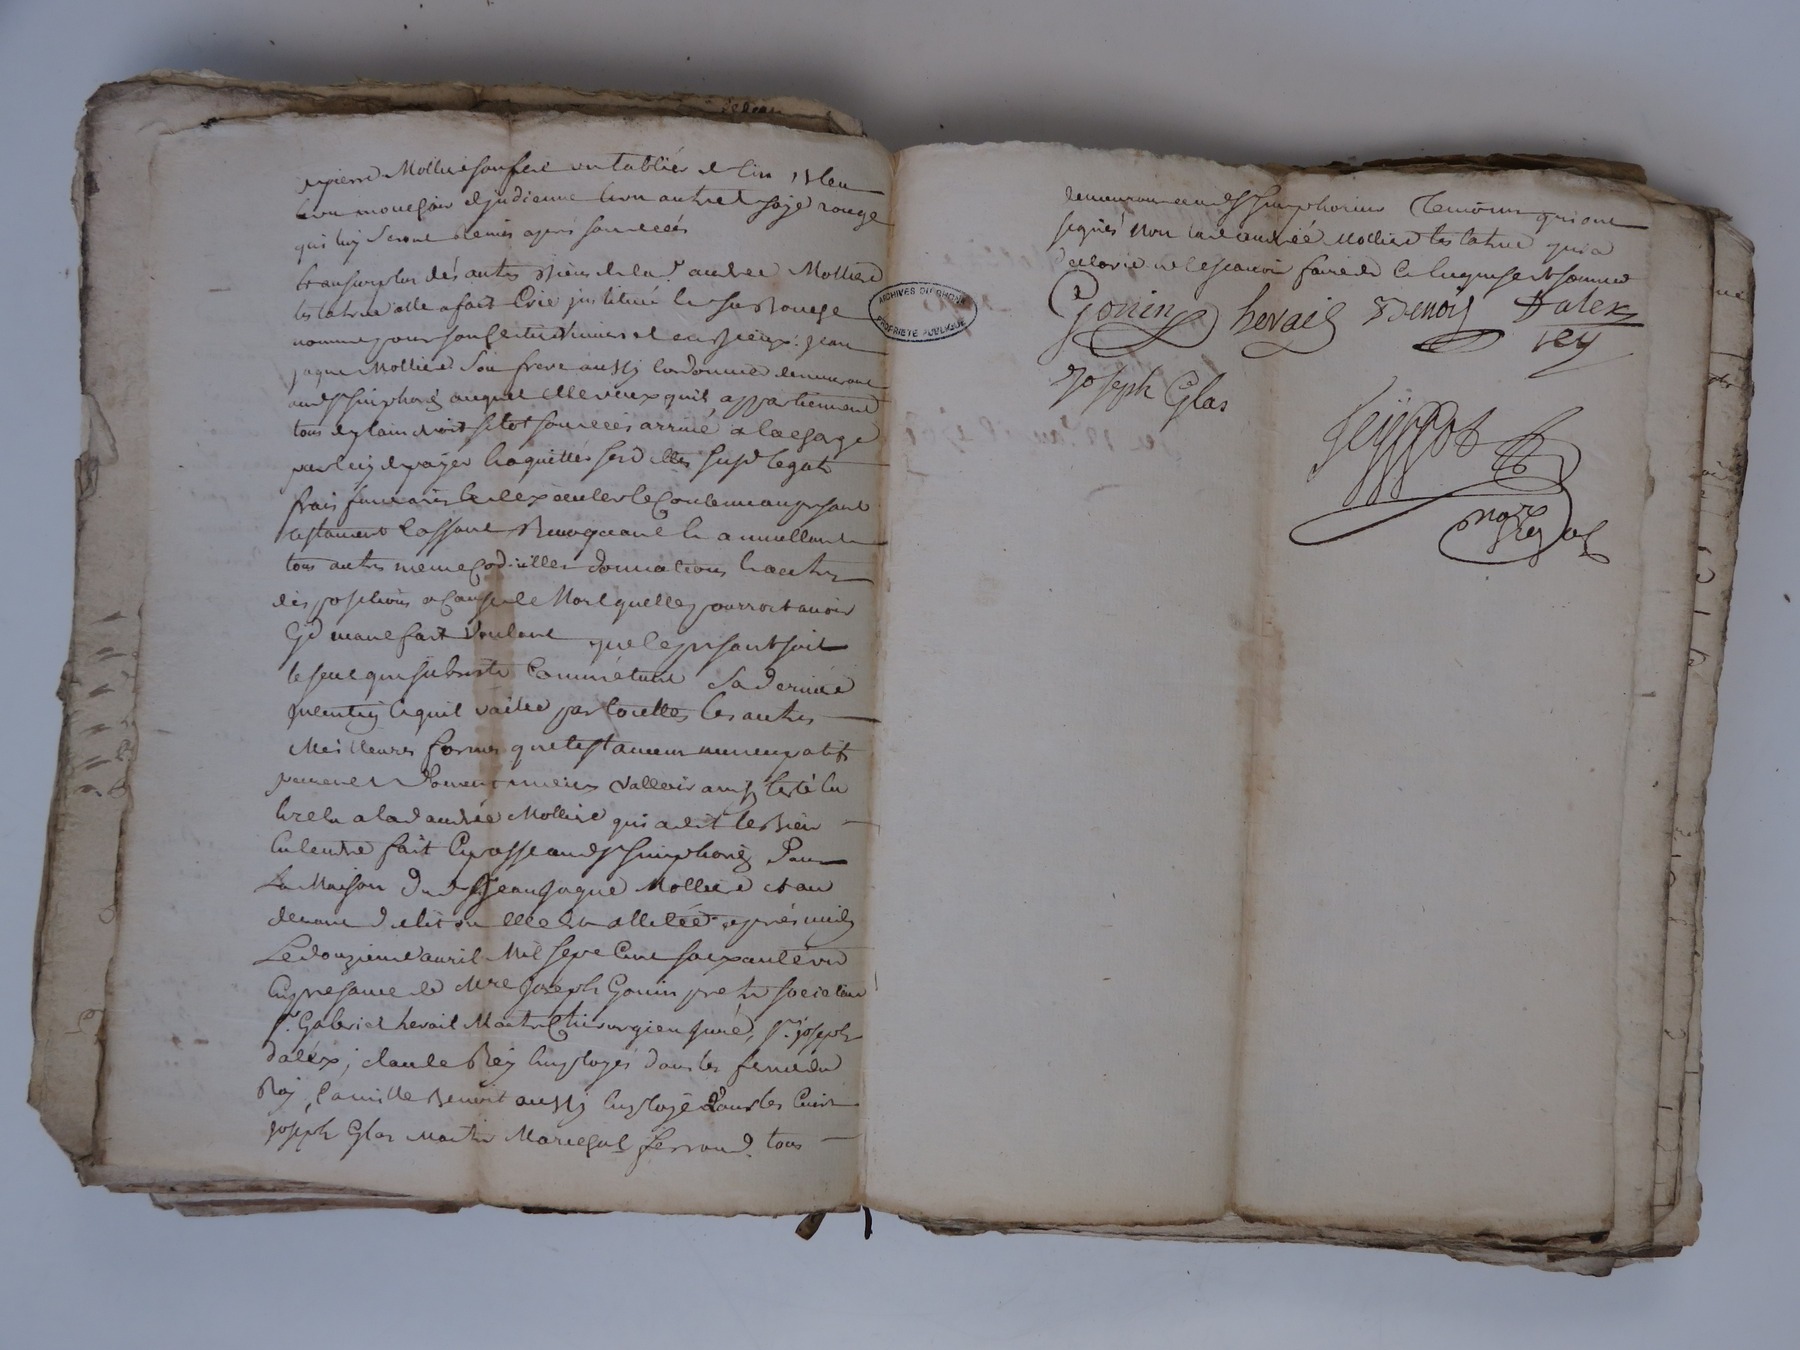 pierre Mollière un tablier de lin bleu
un mouchoir d'indienne un autre soye rouge
qui luy seront Remis apres son decés
au surplus des autres Biens de lad. andrée Mollière
testatrice elle a fait Crée institué de sa Bouche
nommé pour son heritier universel jean
jaque Mollière Son frere aussy cordonnier demeurant
aud St simphorien auquel elle veut qu'ils appartiennent
tous de plain droit sitot son decés arrivé a la charge
par luy de payer acquitter sesd. dettes susd. legats
frais funeraires et executer le Contenu au present
testament Cassant Revoquant et annullant
tous autres meme Codicilles donnations et autres
dispositions a Cause de Mort quelle pourroit avoir
Cy devant fait voulant que le present soit
le seul qui subsiste Comme étant Sa derniere
et quil vaille par toutes les autres
Meilleures formes que testament nuncupatif
peuvent valloir ainsy testé lu
relu a lad andrée Mollière qui a dit le Bien
Entendre fait et passé aud St simphorien Dans
La Maison dud. Sr jean jaque Mollière et au
devant du lit ou elle est allitée après midy
Le douzieme avril Mil sept Cent soixante
En presance de Mre joseph Gonin pretre societaire
sr. Gabriel hervail Maitre Chirurgien juré, sr. joseph
dalex, claude Rey Employés dans les fermes du
Roy, Camille Benoit aussy Employé dans les
joseph Glas Maitre Marechal ferrand. tous
demeurant aud St simphorien Temoins qui ont
signés Non lad andrée Mollière testatrice qui a
declaré ne le scavoir faire de ce enquise et sommée
Gonin hervail Benoit Dalex
rey
Joseph Glas
ARCHIVES DU RHONE
PROPRIETE PUBLIQUE